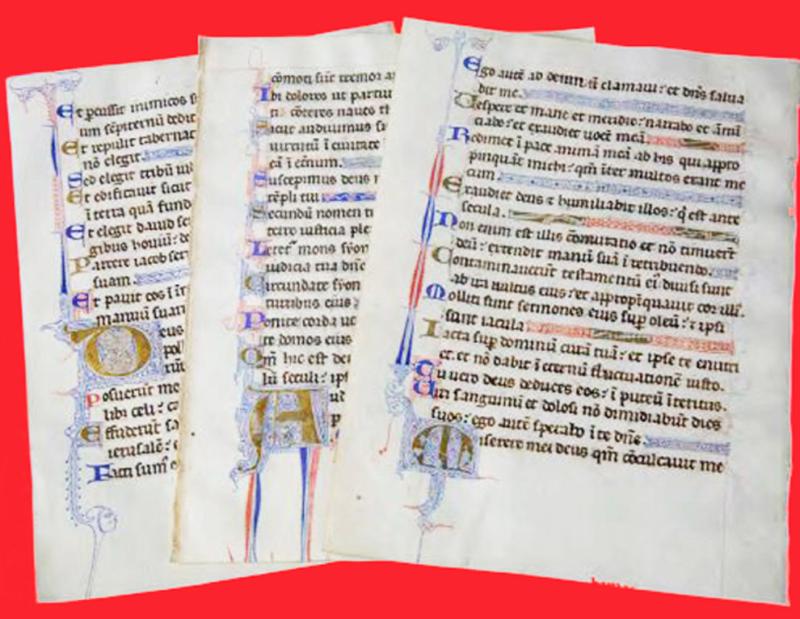 Et percussit inimicos s
um sēpiternū dedit
Et repulit tabernac
nō elegit.
Sed elegit tribū iu
Et edificauit sicut
ī terra quā fund
Et elegit dauid ser
gibus houiū: de
Pascere iacob ser
suam.
Et pauit eos ī īn
manuū suarū
Deus
pol
rūt
Posuerūt mo
libi celi: ca
Effuderūt sa
ierusalē: e
Facti sumꝰ o
cōmoti sūt tremor a
Ibi dolores ut partu
ti cōteres naues th
Sicut audiuimus si
uirtutū ī ciuitate
eā ī eternum.
Suscepimus deus m
tēpli tui
Secundū nomen tu
tere iusticia ple
Letet mons syon
iudicia tua dn̄e
Circundate syon
turribus eius
Ponite corda ue
te domos eius
Qm̄ hic est deꝰ
lū seculi: ip̄e
A
Ego autē ad deum ū clamaui: et dn̄s salua
bit me.
Vespere et mane et meridie: narrabo et ānū
ciabo: et exaudiet uocē meā
Redimet ī pace animā meā ab his qui appro
pinquāt michi: qm̄ īter multos erant me
cum.
Exaudiet deus et humiliabit illos: q̄ est ante
secula.
Non enim est illis cōmutatio et nō timuerūt
deū: extendit manū suā ī retribuendo.
Contaminauerūt testamentū eiꝰ diuisi sunt
ab ira uultus eius: et appropīquauit cor illiꝰ.
Molliti sunt sermones eius sup̄ oleū: et ip̄i
sunt iacula
Iacta sup̄ dominū curā tuā: et ipse te enutri
et. et nō dabit ī eternū fluctuationē iusto.
Tu uero deus deduces eos: ī puteū īteritus.
Viri sanguinū et dolosi nō dimidiabūt dies
suos: ego autē sperabo ī te dn̄e.
Miserere mei deus qm̄ cōculcauit me